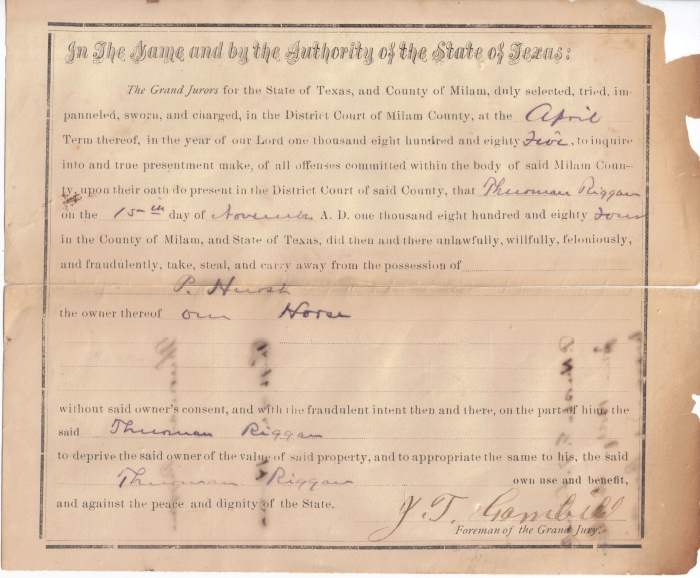 In The Name and by the Authority of the State of Texas:
The Grand Jurors for the State of Texas, and County of Milam, duly selected, tried, im-
panneled, sworn, and charged, in the District Court of Milam County, at the April
Term thereof, in the year of our Lord one thousand eight hundred and eighty five, to inquire
into and true presentment make, of all offenses committed within the body of said Milam Coun-
ty, upon their oath do present in the District Court of said County, that Thurman Riggan
on the 15th day of November A. D. one thousand eight hundred and eighty four
in the County of Milam, and State of Texas, did then and there unlawfully, willfully, feloniously,
and fraudulently, take, steal, and carry away from the possession of
P. Hursh
the owner thereof one Horse
without said owner's consent, and with the fraudulent intent then and there, on the part of him, the
said Thurman Riggan
to deprive the said owner of the value of said property, and to appropriate the same to his, the said
Thurman Riggan own use and benefit,
and against the peace and dignity of the State.
J. T. Gambill
Foreman of the Grand Jury.